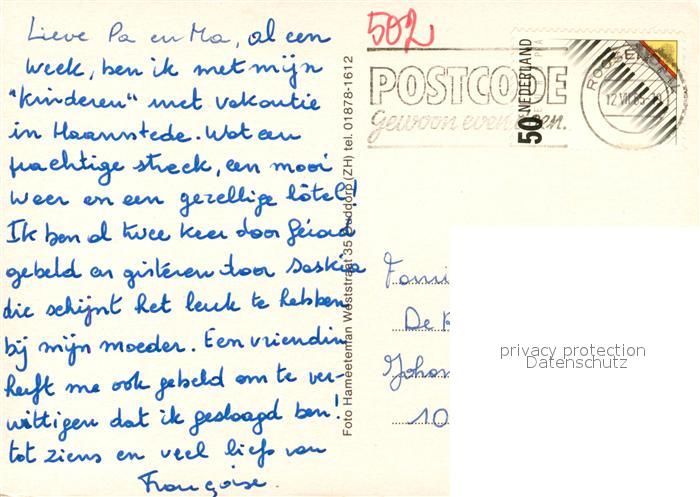 Lieve Pa en Ma, al een
week, ben ik met mijn
"kinderen" met vakantie
in Haamstede. Wat een
prachtige streek, een mooi
weer en een gezellige hôtel!
Ik ben al twee keer door Gérard
gebeld en gisteren door Saskia
die schijnt het leuk te hebben
bij mijn moeder. Een vriendin
heeft me ook gebeld om te ver-
wittigen dat ik geslaagd ben!
tot ziens en veel liefs van
Françoise.
Foto Hameeteman Weststraat 35 Ouddorp (ZH) tel. 01878-1612
502
POSTCODE
gewoon even
NEDERLAND
50
12 VII 85
Fami
De
Johan
10
privacy protection
Datenschutz